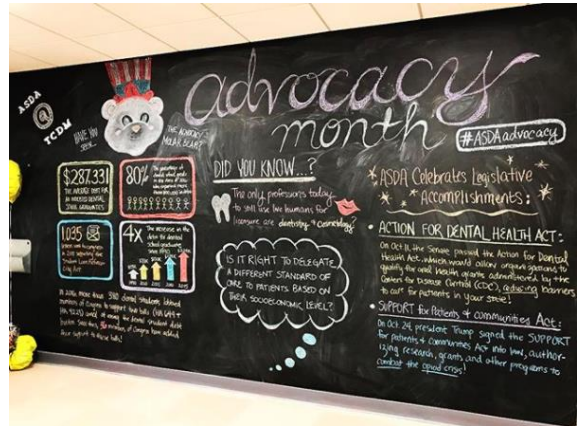 ASDA
@
TCDM
HAVE YOU
SEEN
THE ADVOCACY
MOLAR BEAR?
advocacy
month
#ASDAadvocacy
$287,331
THE AVERAGE DEBT FOR
AN INDEBTED DENTAL
SCHOOL GRADUATE
80%
The percentage of
dental school grads
1,035
4X
The increase in the
debt for dental
school graduates
DID YOU KNOW...?
The only professions today
to still use live humans for
licensure are dentistry & cosmetology?
IS IT RIGHT TO DELEGATE
A DIFFERENT STANDARD OF
CARE TO PATIENTS BASED ON
THEIR SOCIOECONOMIC LEVEL?
ASDA Celebrates Legislative
Accomplishments:
ACTION FOR DENTAL HEALTH ACT:
On Oct 11, the Senate passed the Action for Dental
Health Act, which would allow organizations to
qualify for oral health grants administered by the
Center for Disease Control (CDC), reducing barriers
to care for patients in your state!
SUPPORT for Patients & Communities Act:
On Oct 24, president Trump signed the SUPPORT
for patients & communities Act into law, author-
izing research, grants and other programs to
combat the opioid crisis!
In 2018, more than 380 dental students lobbied
members of Congress to support two bills